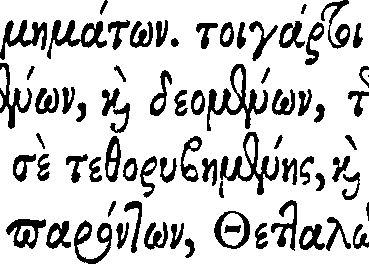 μημάτων. τοιγάρτοι
ένων, ϗ̀ δεομένων, τ
σὲ τεθορυβημένης, ϗ̀
παρόντων, Θετταλῶ